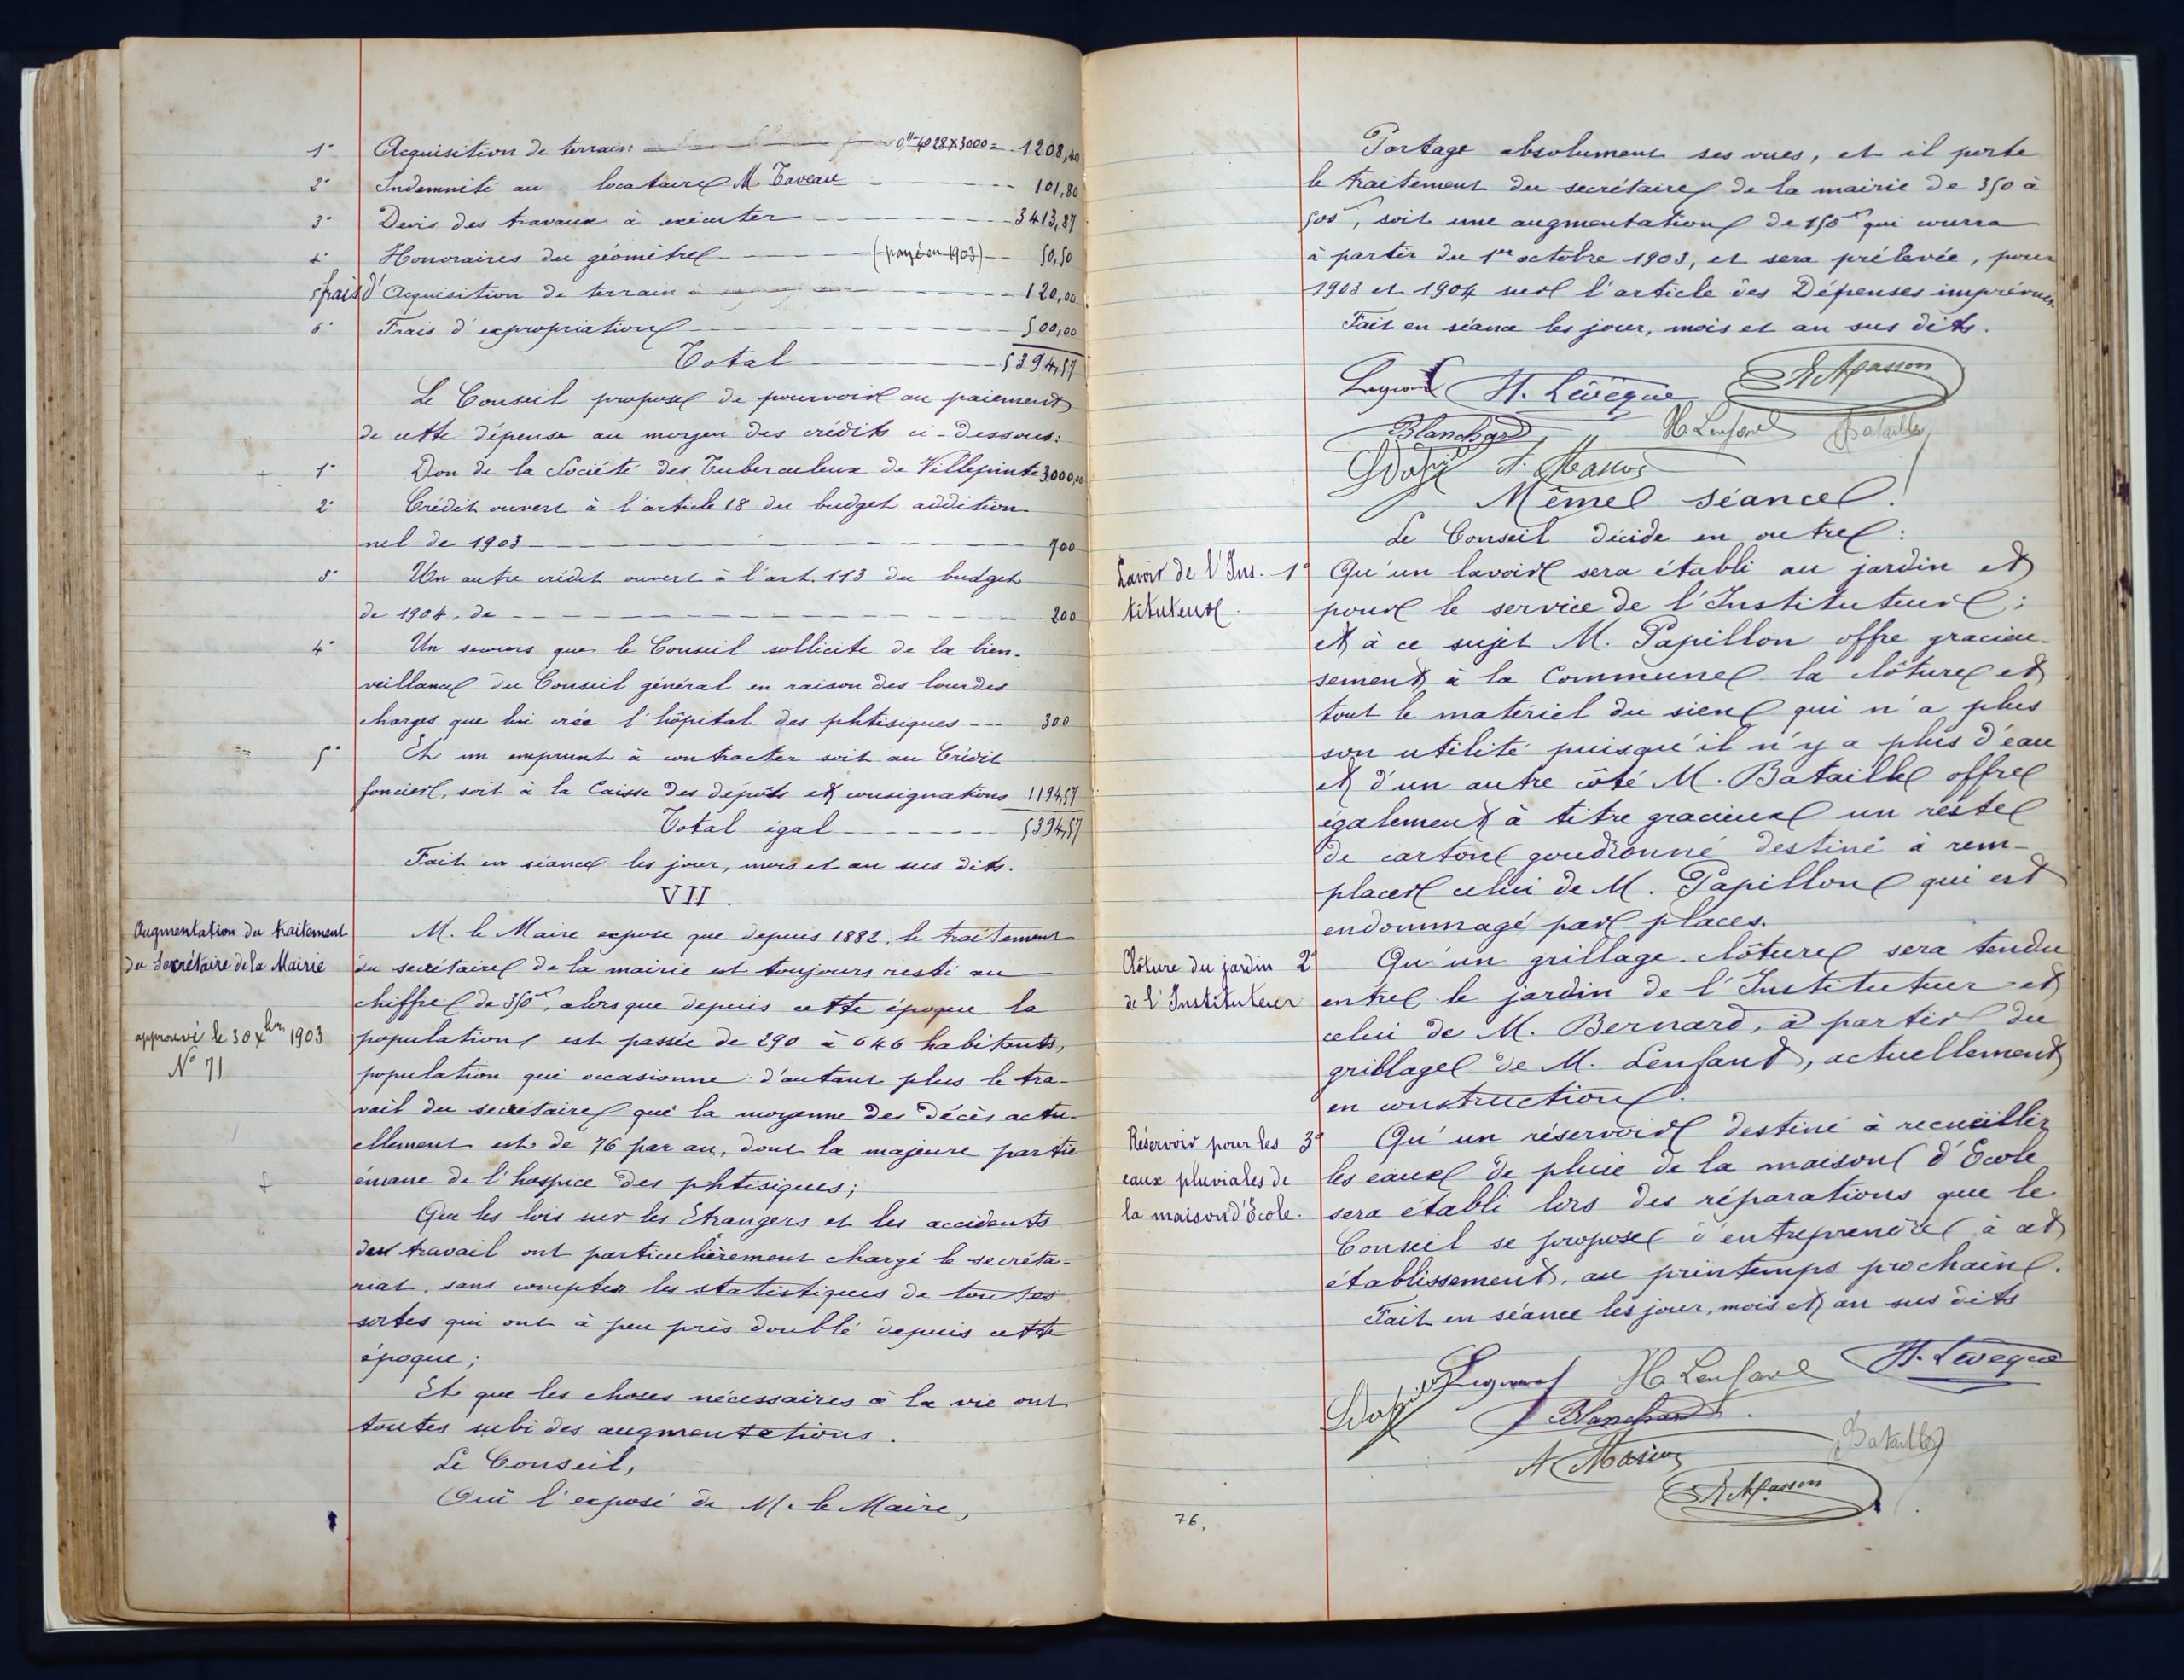 1° Acquisition de terrain 0,Ha 4028 X 3000 = 1208,40
2° Indemnité au locataire M. Taveau 101,80
3° Devis des travaux à exécuter 3413,87
4° Honoraires du géomètre (payé en 1903) 50,50
5° frais d'Acquisition de terrain 120,00
6° Frais d'expropriation 500,00
Total 5394,57
Le Conseil propose de pourvoir au paiement
de cette dépense au moyen des crédits ci-dessous:
1° Don de la Société des Tuberculeux de Villepinte 3.000,00
2° Crédit ouvert à l'article 18 du budget addition
nel de 1903 700
3° Un autre crédit ouvert à l'art. 113 du budget
de 1904, de 200
4° Un secours que le Conseil sollicite de la bien-
veillance du Conseil général en raison des lourdes
charges que lui crée l'hôpital des phtisiques 300
5° Et un emprunt à contracter soit au Crédit
foncier, soit à la Caisse des dépôts et consignations 1194,57
Total égal 5394,57
Fait en séance les jour, mois et an sus dits.
VII.
Augmentation du traitement
du Secrétaire de la Mairie
approuvé le 30 Xbre 1903
N° 71
M. le Maire expose que depuis 1882, le traitement
du secrétaire de la mairie est toujours resté au
chiffre de 350 fr, alors que depuis cette époque la
population est passée de 290 à 646 habitants,
population qui occasionne d'autant plus le tra-
vail du secrétaire que la moyenne des décès actu-
ellement est de 76 par an, dont la majeure partie
émane de l'hospice des phtisiques;
Que les lois sur les Etrangers et les accidents
du travail ont particulièrement chargé le secréta-
riat, sans compter les statistiques de toutes
sortes qui ont à peu près doublé depuis cette
époque;
Et que les choses nécessaires à la vie ont
toutes subi des augmentations.
Le Conseil,
Ouï l'exposé de M. le Maire,
Partage absolument ses vues, et il porte
le traitement du secrétaire de la mairie de 350 à
500 fr, soit une augmentation de 150 fr qui courra
à partir du 1er octobre 1903, et sera prélevée, pour
1903 et 1904 sur l'article des Dépenses imprévues.
Fait en séance les jour, mois et an sus dits.
Legrand H. Lévêque A Masson
Blanchard H. Lenfant Bataille
Même séance.
Le Conseil décide en outre:
Lavoir de l'Ins-
tituteur.
1° Qu'un lavoir sera établi au jardin et
pour le service de l'Instituteur;
et à ce sujet M. Papillon offre gracieu-
sement à la Commune la clôture et
tout le matériel du sien qui n'a plus
son utilité puisqu'il n'y a plus d'eau
et d'un autre côté M. Bataille offre
également à titre gracieux un reste
de carton goudronné destiné à rem-
placer celui de M. Papillon qui est
endommagé par places.
Clôture du jardin
de l'Instituteur
2° Qu'un grillage-clôture sera tendu
entre le jardin de l'Instituteur et
celui de M. Bernard, à partir du
grillage de M. Lenfant, actuellement
en construction.
Réservoir pour les
eaux pluviales de
la maison d'Ecole.
3° Qu'un réservoir destiné à recueillir
les eaux de pluie de la maison d'Ecole
sera établi lors des réparations que le
Conseil se propose d'entreprendre à cet
établissement, au printemps prochain.
Fait en séance les jour, mois et an sus dits
Legrand H Lenfant H. Lévêque
Blanchard
Bataille
A Masson
76.